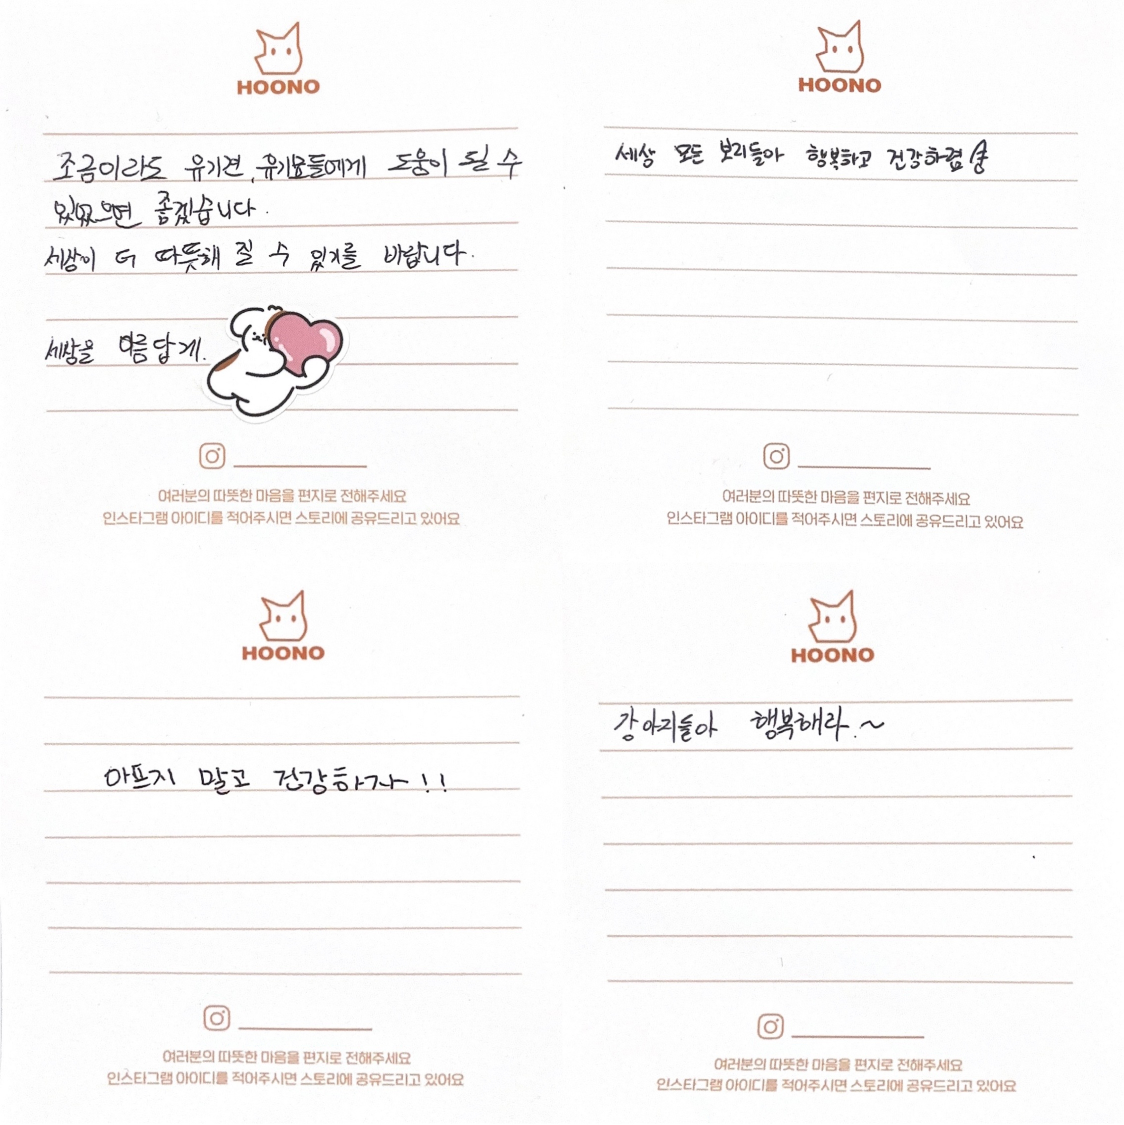 HOONO
조금이라도 유기견, 유기묘들에게 도움이 될 수
있었으면 좋겠습니다.
세상이 더 따뜻해 질 수 있기를 바랍니다.
세상을 아름답게.
여러분의 따뜻한 마음을 편지로 전해주세요
인스타그램 아이디를 적어주시면 스토리에 공유드리고 있어요
HOONO
세상 모든 보리들아 행복하고 건강하렴
여러분의 따뜻한 마음을 편지로 전해주세요
인스타그램 아이디를 적어주시면 스토리에 공유드리고 있어요
HOONO
아프지 말고 건강하자!!
여러분의 따뜻한 마음을 편지로 전해주세요
인스타그램 아이디를 적어주시면 스토리에 공유드리고 있어요
HOONO
강아지들아 행복해라.~
여러분의 따뜻한 마음을 편지로 전해주세요
인스타그램 아이디를 적어주시면 스토리에 공유드리고 있어요